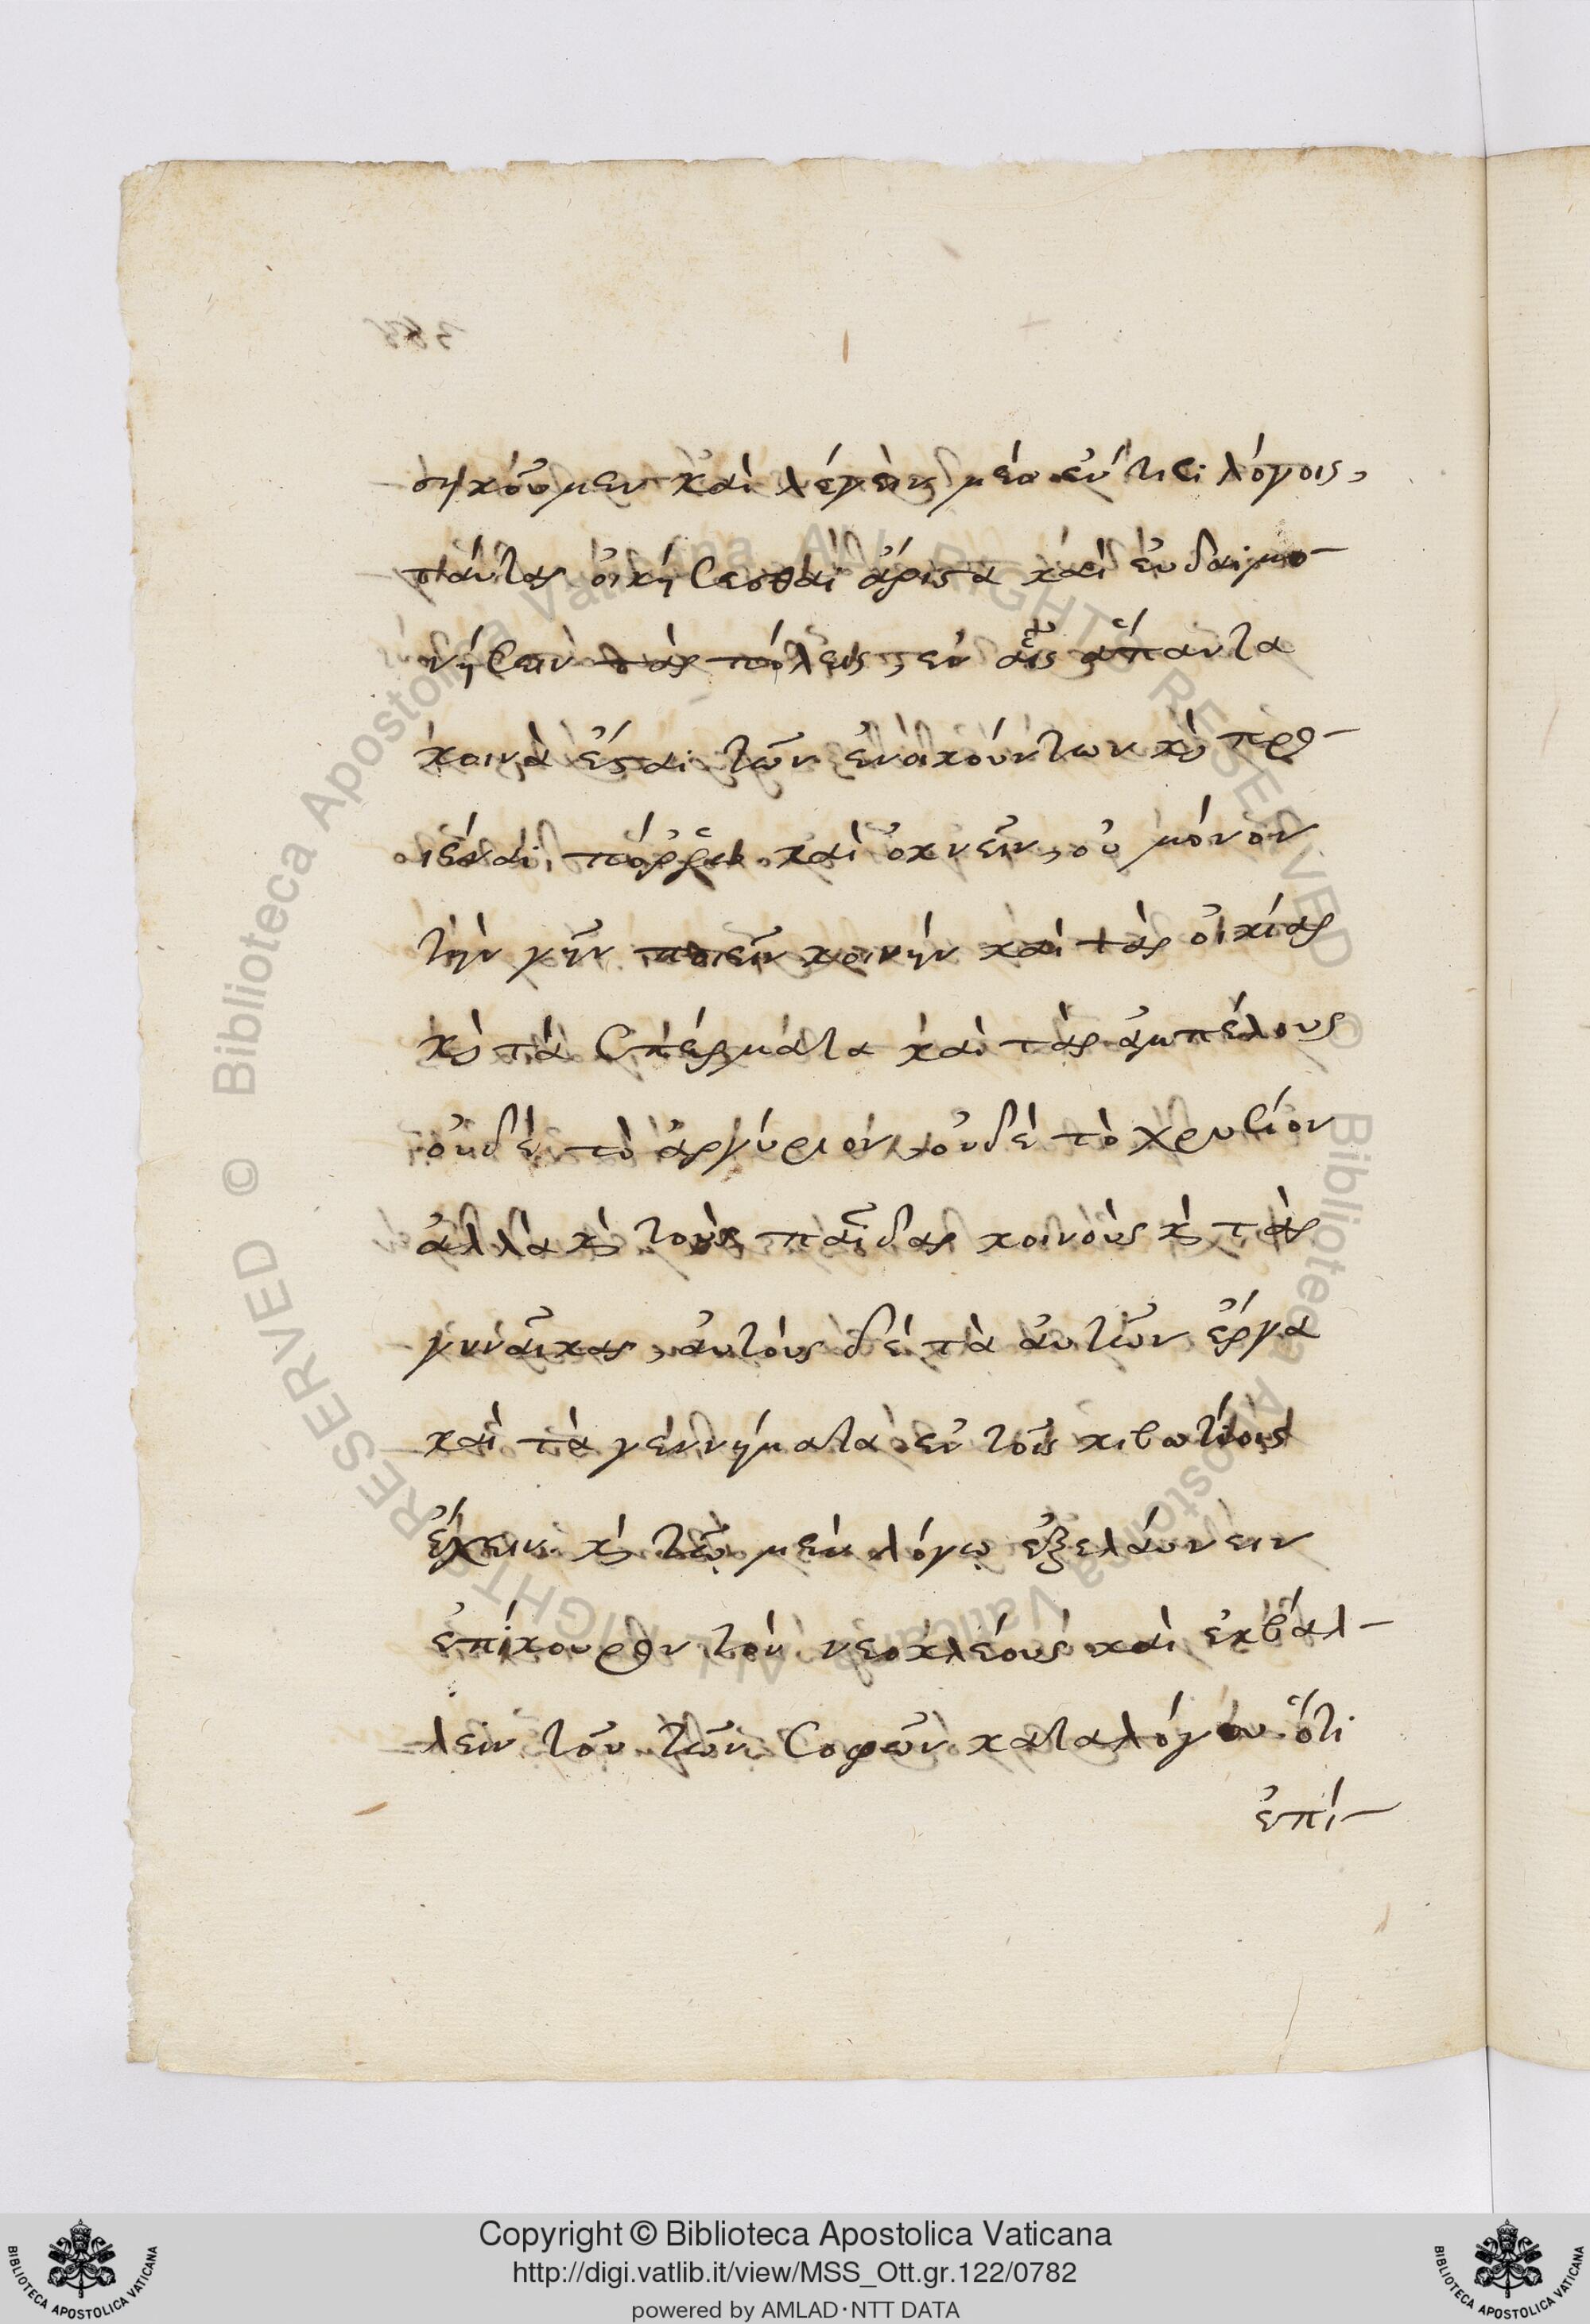 σηκοῦμεν καὶ λέγειν μὲν ἐν τισι λόγοις,
πάντας οἰκήσεσθαι ἄριστα καὶ εὐδαιμο-
νήσειν τὰς πόλεις, ἐν αἷς ἅπαντα
κοινὰ ἔσται τῶν ἐνοικούντων κ προ-
ιέναι πόῤῥω καὶ ὀκνεῖν, οὐ μόνον
τὴν γῆν ποιεῖν κοινὴν καὶ τὰς οἰκίας
κ τὰ σπέρματα καὶ τὰς ἀμπέλους
οὐδὲ τὸ ἀργύριον, οὐδὲ τὸ χρυσίον
ἀλλὰ κ τοὺς παῖδας κοινοὺς κ τὰς
γυναῖκας, αὐτοὺς δὲ τὰ αὐτῶν ἔργα
καὶ τὰ γεννήματα ἐν τοῖς κιβωτίοις
ἔχειν κ τῷ μὲν λόγῳ ἐξελαύνειν
ἐπίκουρον τὸν νεοκλέους καὶ ἐκβάλ-
λειν τοῦ τῶν σοφῶν καταλόγου ὅτι
ἐπί-
Copyright © Biblioteca Apostolica Vaticana
http://digi.vatlib.it/view/MSS_Ott.gr.122/0782
powered by AMLAD・NTT DATA
BIBLIOTECA APOSTOLICA VATICANA
BIBLIOTECA APOSTOLICA VATICANA
© Biblioteca Apostolica Vaticana ALL RIGHTS RESERVED © Biblioteca Apostolica Vaticana ALL RIGHTS RESERVED